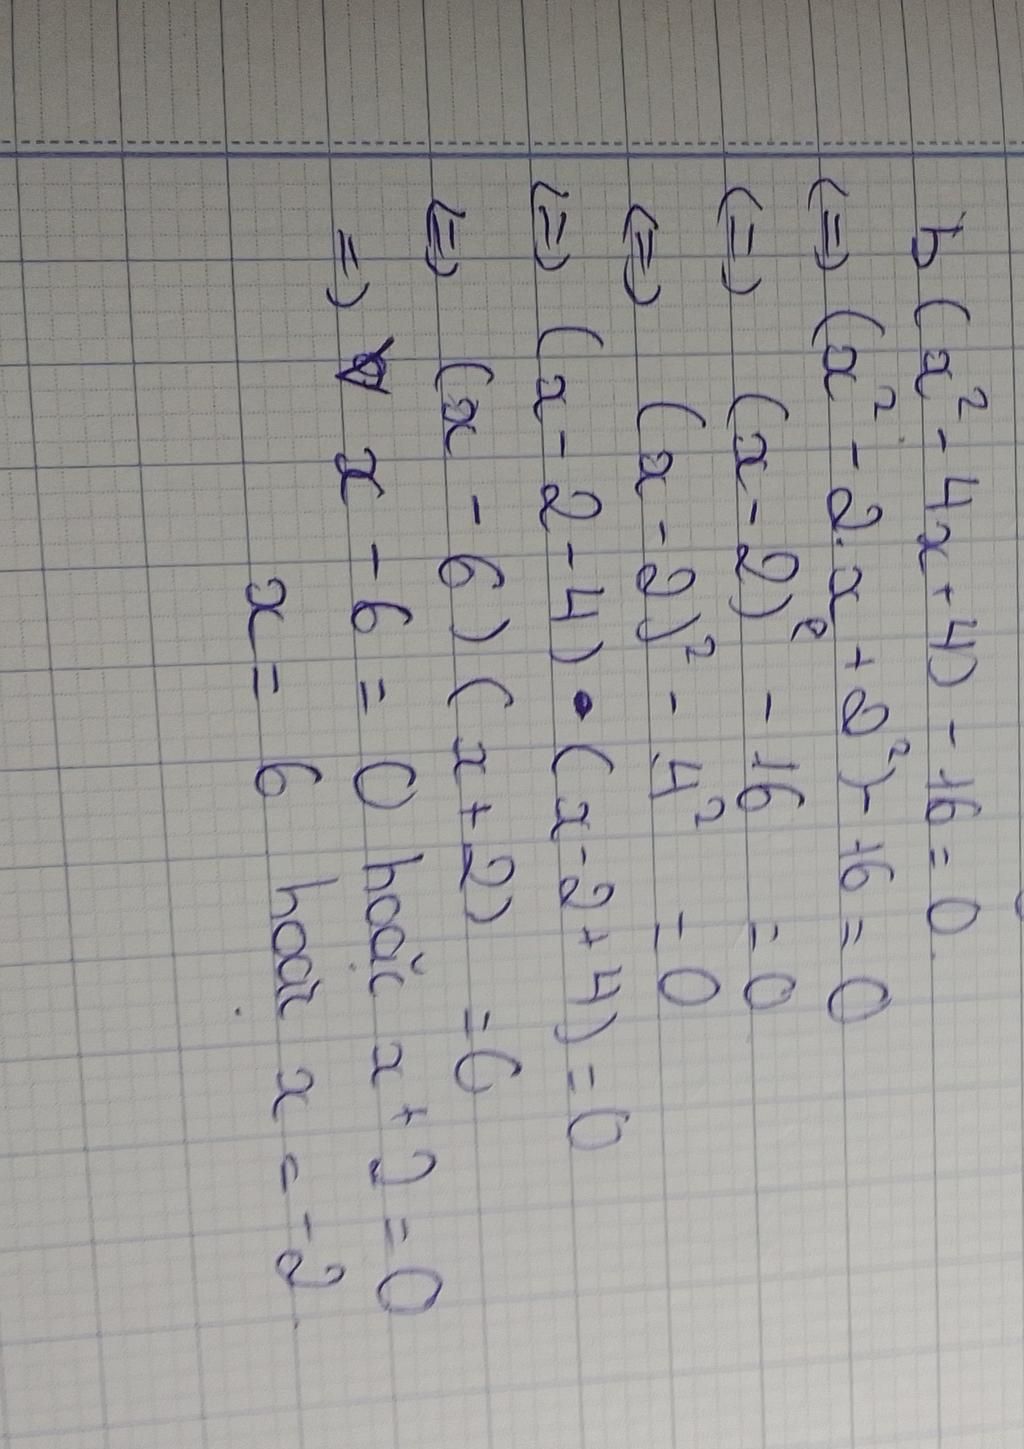 b (x² - 4x + 4) - 16 = 0
(=) (x² - 2.x + 2²) - 16 = 0
(=) (x - 2)² - 16 = 0
(=) (x - 2)² - 4² = 0
(=) (x - 2 - 4) • (x - 2 + 4) = 0
(=) (x - 6) (x + 2) = 6
=) x - 6 = 0 hoặc x + 2 = 0
x = 6 hoặc x = -2